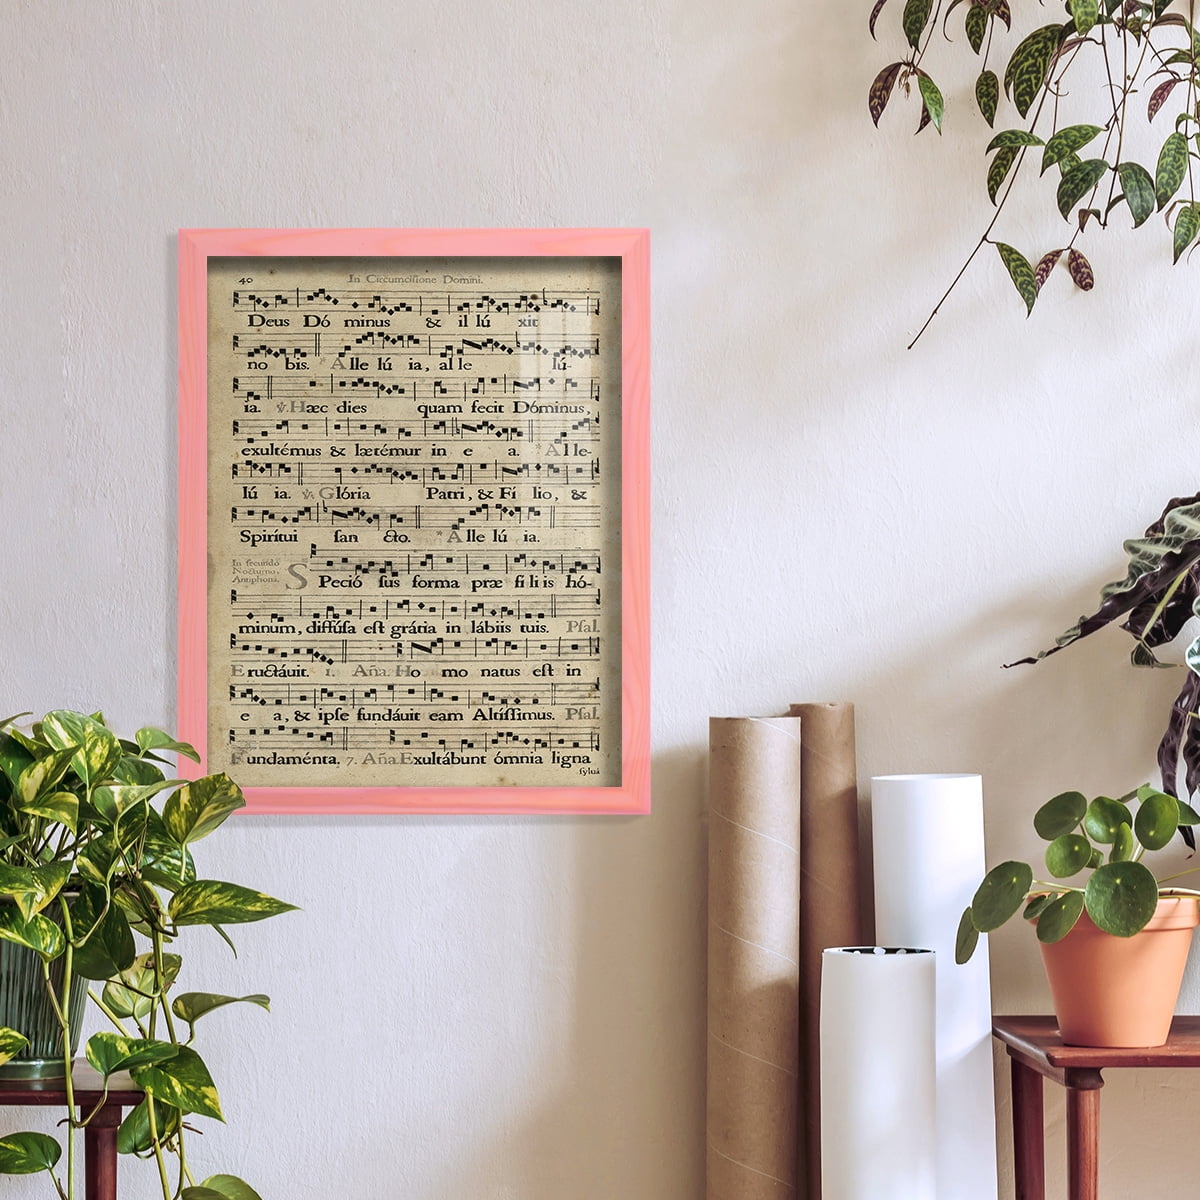 40 In Circumcisione Domini.
Deus Dó minus & il lú xit
no bis. * A lle lú ia, al le lú-
ia. ℣. Hæc dies quam fecit Dóminus,
exultémus & lætémur in e a. * Al le-
lú ia. ℣. Glória Patri, & Fí lio, &
Spirítui ſan cto. * A lle lú ia.
In ſecundo
Nocturno.
Antiphona.
SPeció ſus forma præ fi li is hó-
minum, diffúſa eſt grátia in lábiis tuis. Pſal.
Eructáuit. 1. Aña. Ho mo natus eſt in
e a, & ipſe fundáuit eam Altíſſimus. Pſal.
Fundaménta. 7. Aña. Exultábunt ómnia ligna
ſyluá